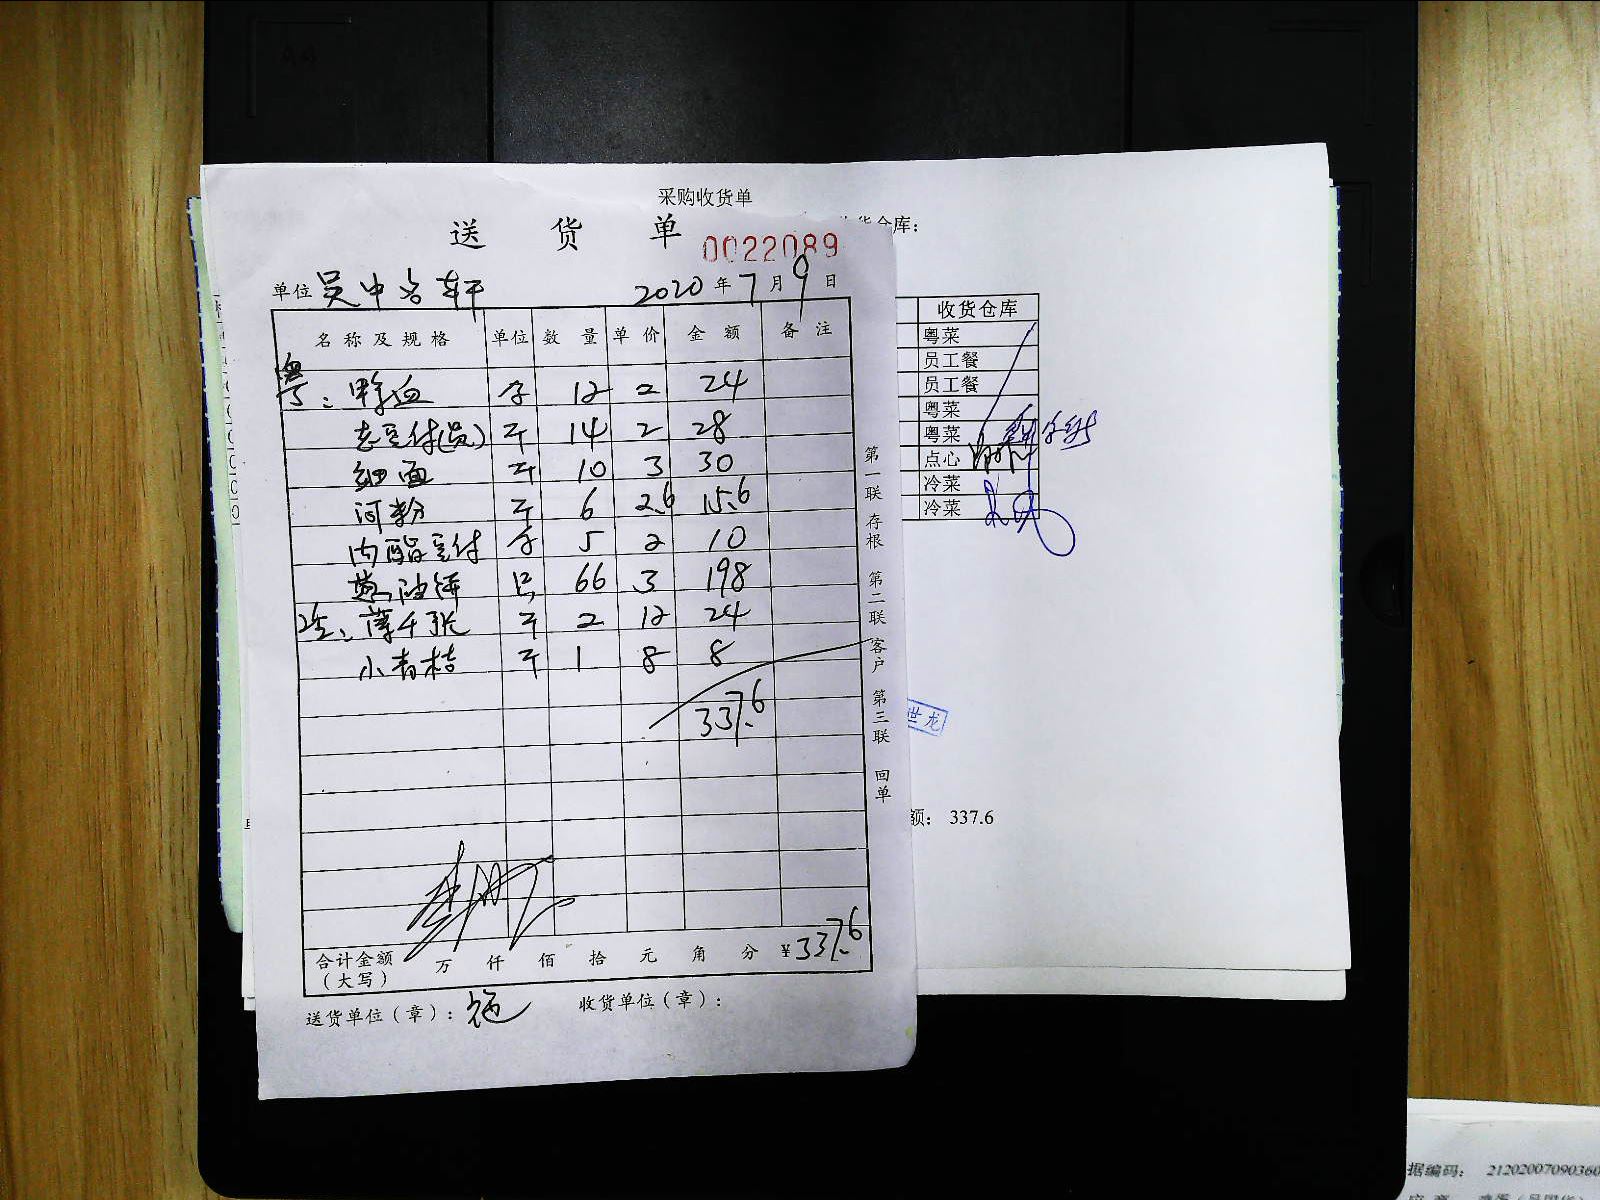 采购收货单
送 货 单
0022089
货仓库：
单位 吴中名轩 2020 年 7 月 9 日
名称及规格 单位 数量 单价 金额 备注
粤： 鸭血 12 2 24
老豆付(员) 斤 14 2 28
细面 斤 10 3 30
河粉 斤 6 2.6 15.6
内酯豆付 5 2 10
葱油饼 只 66 3 198
冷： 薄千张 斤 2 12 24
小青桔 斤 1 8 8
337.6
合计金额（大写） 万 仟 佰 拾 元 角 分 ¥337.6
送货单位（章）： 施 收货单位（章）：
第一联 存根 第二联 客户 第三联 回单
收货仓库
粤菜
员工餐
员工餐
粤菜
粤菜
点心
冷菜
冷菜
世龙
额： 337.6
据编码： 21202007090360